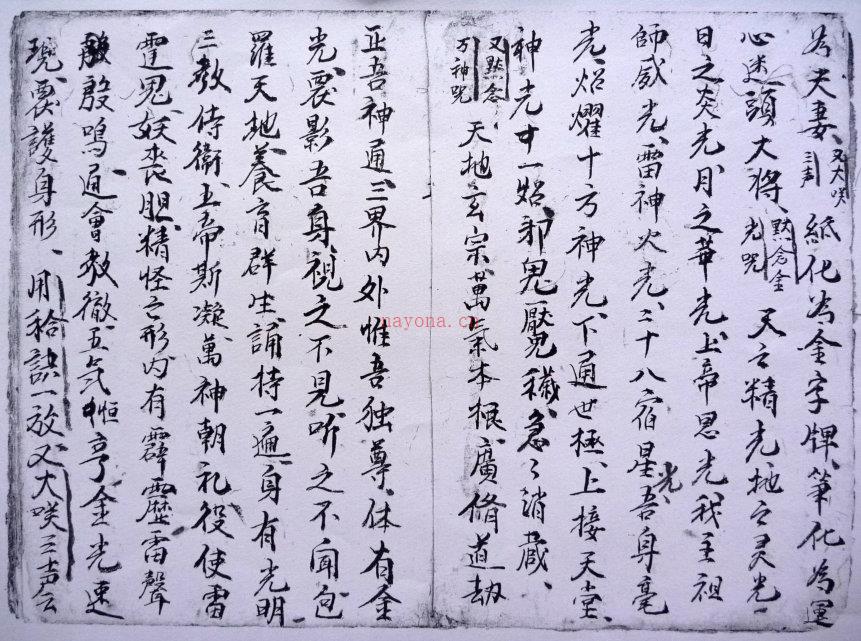 为夫妻、又大咲三声紙化為金字牌、筆化為運
心迷頭大将、黙念金光咒天之精光地之灵光
日之炎光月之華光上帝恩光我主祖
師威光、雷神火光、二十八宿星光吾身毫
光、焰耀十方神光、下通世極、上接天堂、
神光廿一焰邪鬼魘穢急々消蔵、
又黙念万神咒天地玄宗萬氣本根、廣脩道劫
正吾神通、三界内外惟吾独尊、体有金
光裏影吾身、視之不見听之不闻包
羅天地養育群生、誦持一遍、身有光明、
三教侍衛、五帝斯凝萬神朝礼役使雷
霆鬼妖喪胆、精怪亡形内有霹靂雷聲
殷鳴、通會教徹、五气恒亨金光速
現裏護身形、用訣一放又大咲三声云
nayona.cn